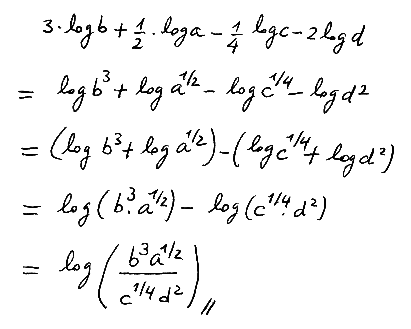 3·log b + 1/2·log a - 1/4 log c - 2 log d
= log b³ + log a^1/2 - log c^1/4 - log d²
= (log b³ + log a^1/2) - (log c^1/4 + log d²)
= log (b³·a^1/2) - log (c^1/4·d²)
= log (b³a^1/2 / c^1/4 d²) //